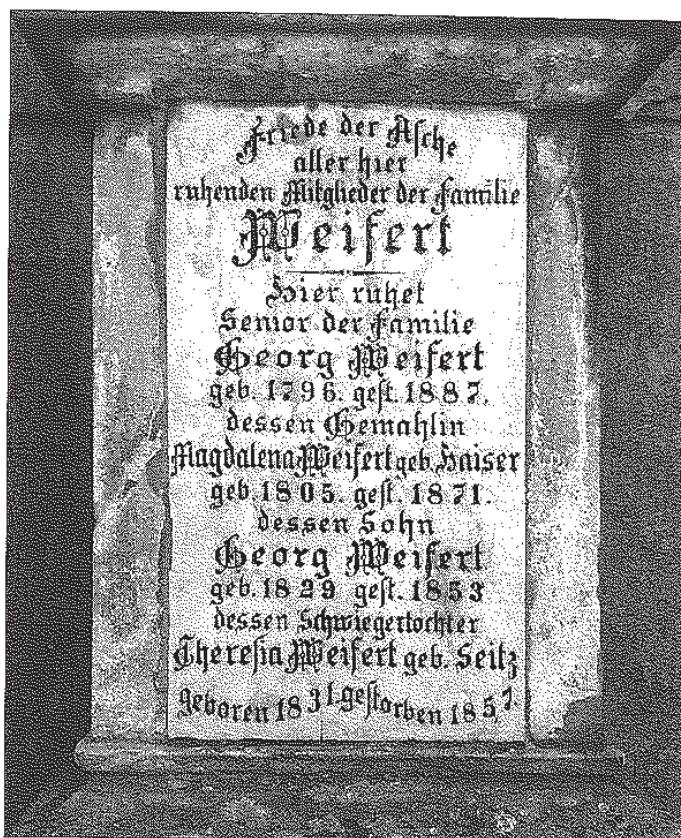 Friede der Asche
aller hier
ruhenden Mitglieder der Familie
Weifert
Hier ruhet
Senior der Familie
Georg Weifert
geb. 1796. gest. 1887.
dessen Gemahlin
Magdalena Weifert geb. Haiser
geb. 1805. gest. 1871.
dessen Sohn
Georg Weifert
geb. 1829 gest. 1853
dessen Schwiegertochter
Theresia Weifert geb. Seitz
geboren 1831. gestorben 1857.